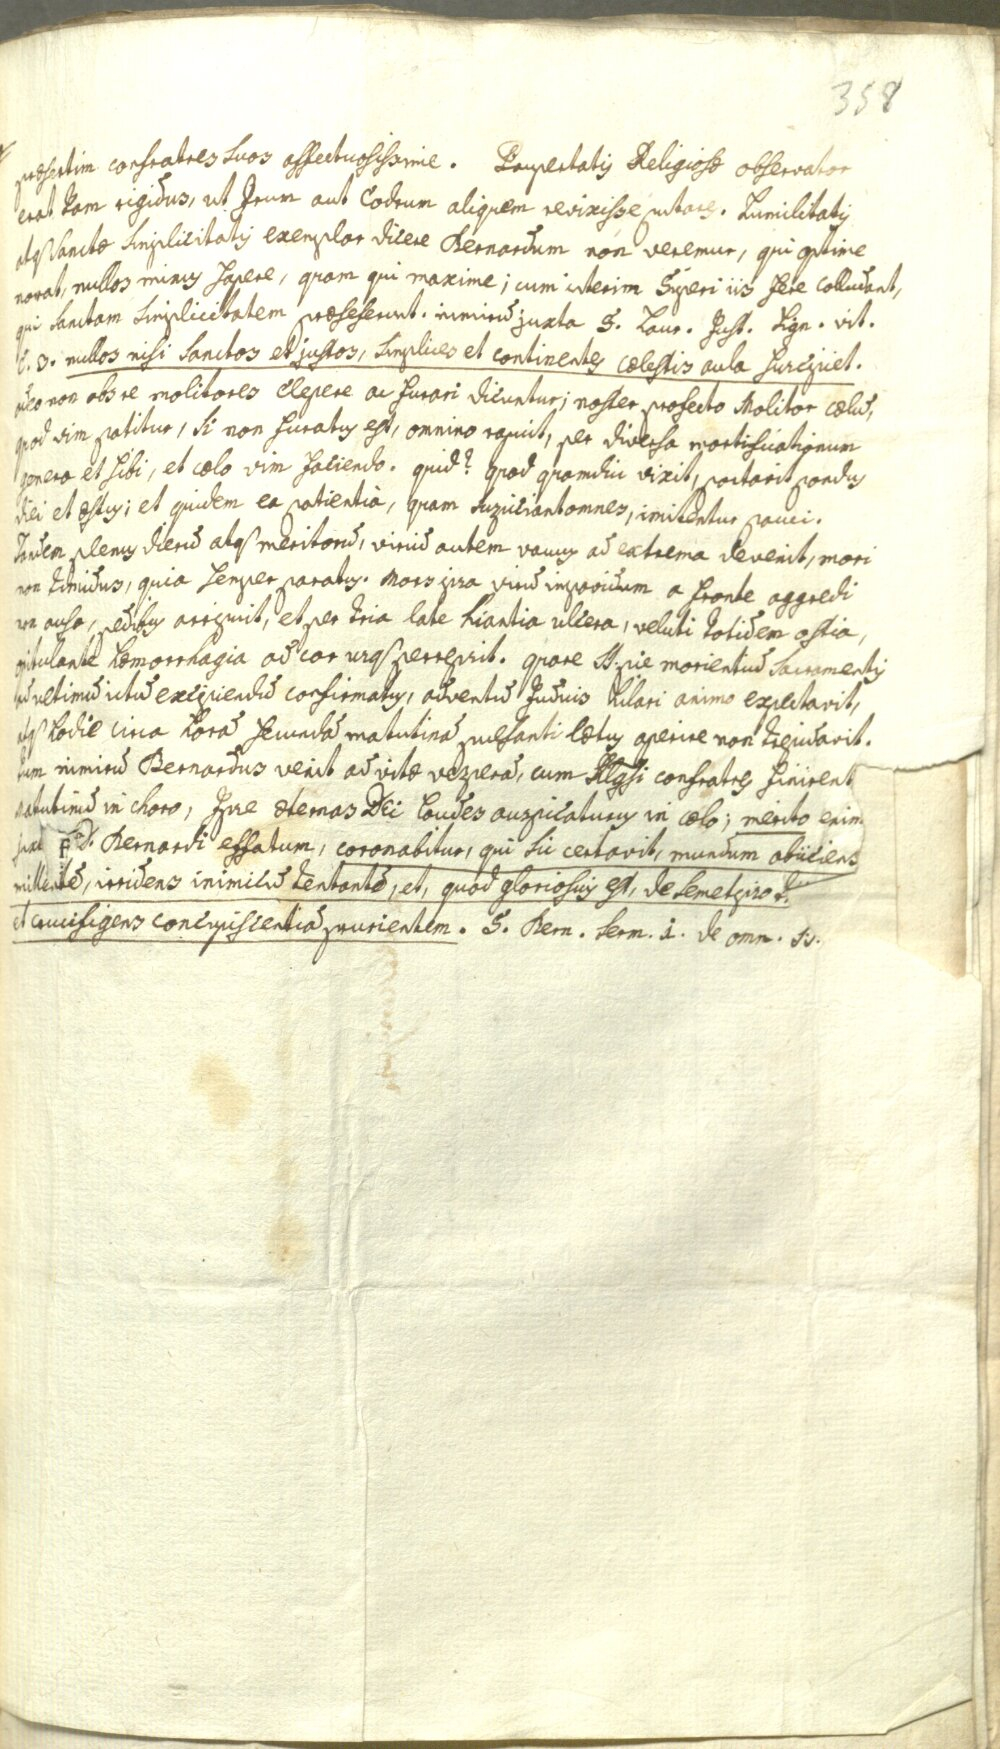 358
præsertim confratres suos affectuosissime. Paupertatis Religiosæ observator
erat tam rigidus, ut Irum aut Codrum aliquem revixisse putares. Humilitatis
atq sanctæ simplicitatis exemplar dicere Bernardum non veremur, qui optime
norat, nullos minus sapere, quam qui maxime; cum interim Superi iis fere colludant,
qui sanctam simplicitatem præseferunt. nimirū juxta S. Laur. Just. Lign. vit.
C. 3. nullos nisi sanctos et justos, simplices et continentes cælestis aula suscipiet.
adeo non abs re molitores clepere ac furari dicuntur; noster profecto Molitor cælū,
quod vim patitur, si non furatus est, omnino rapuit, per diversa mortificationum
genera et sibi, et cælo vim faciendo. quid? quod quamdiu vixit, portarit pondus
diei et æstus; et quidem ea patientiâ, quam suspiciant omnes, imitentur pauci.
Tandem plenus dierū atq meritorū, viriū autem vacuus ad extrema devenit, mori
non timidus, quia semper paratus. Mors ipsa virū improvidum a fronte aggredi
non ausa, pedibus arripuit, et per tria late hiantia ulcera, veluti totidem ostia,
opitulante hæmorrhagia ad cor usq perrepsit. quare SS. pie morientiū Sacramentis
ad ultimū ictū excipiendū confirmatus, adventū Judicis hilari animo expectavit,
atq hodie circa horā secundā matutinā pulsanti lætus aperire non trepidavit.
tum nimirū Bernardus venit ad vitæ vesperā, cum Rlgsi confratres finirent
matutinū in choro, Ipse æternas Dei laudes auspicaturus in cælo; merito enim
juxta D. Bernardi effatum, coronabitur, qui sic certavit, mundum abiiciens
, irridens inimicū tentantē, et, quod gloriosius est, de semetipso t.
et crucifigens concupiscentiā prurientem. S. Bern. serm. 1. de omn. SS.